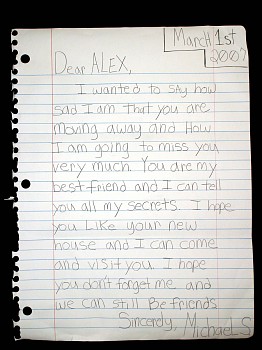 March 1st
2007
Dear ALEX,
I wanted to say how
sad I am that you are
moving away and How
I am going to miss you
very much. You are my
best friend and I can tell
you all my secrets. I hope
you Like your new
house and I can come
and visit you. I hope
you don't forget me and
we can still Be friends
Sincerely, Michael S